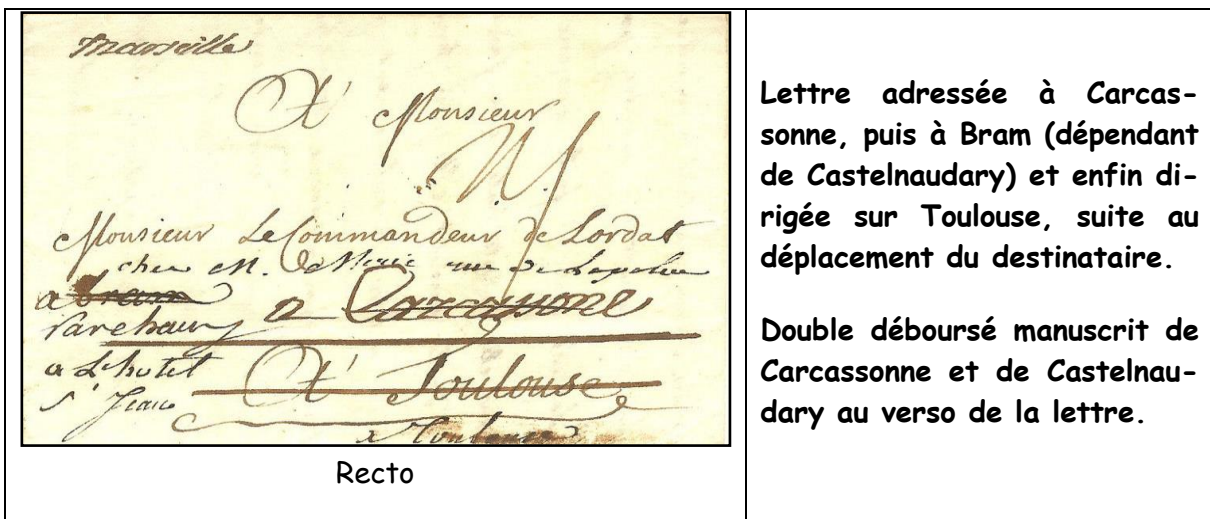 Marseille
A Monsieur
Monsieur Le Commandeur de Lordat
chez M. rue de
a Bram
a Carcassone
a L'hotel
St Jean
A Toulouse
a Toulouse
Recto
Lettre adressée à Carcas-
sonne, puis à Bram (dépendant
de Castelnaudary) et enfin di-
rigée sur Toulouse, suite au
déplacement du destinataire.
Double déboursé manuscrit de
Carcassonne et de Castelnau-
dary au verso de la lettre.